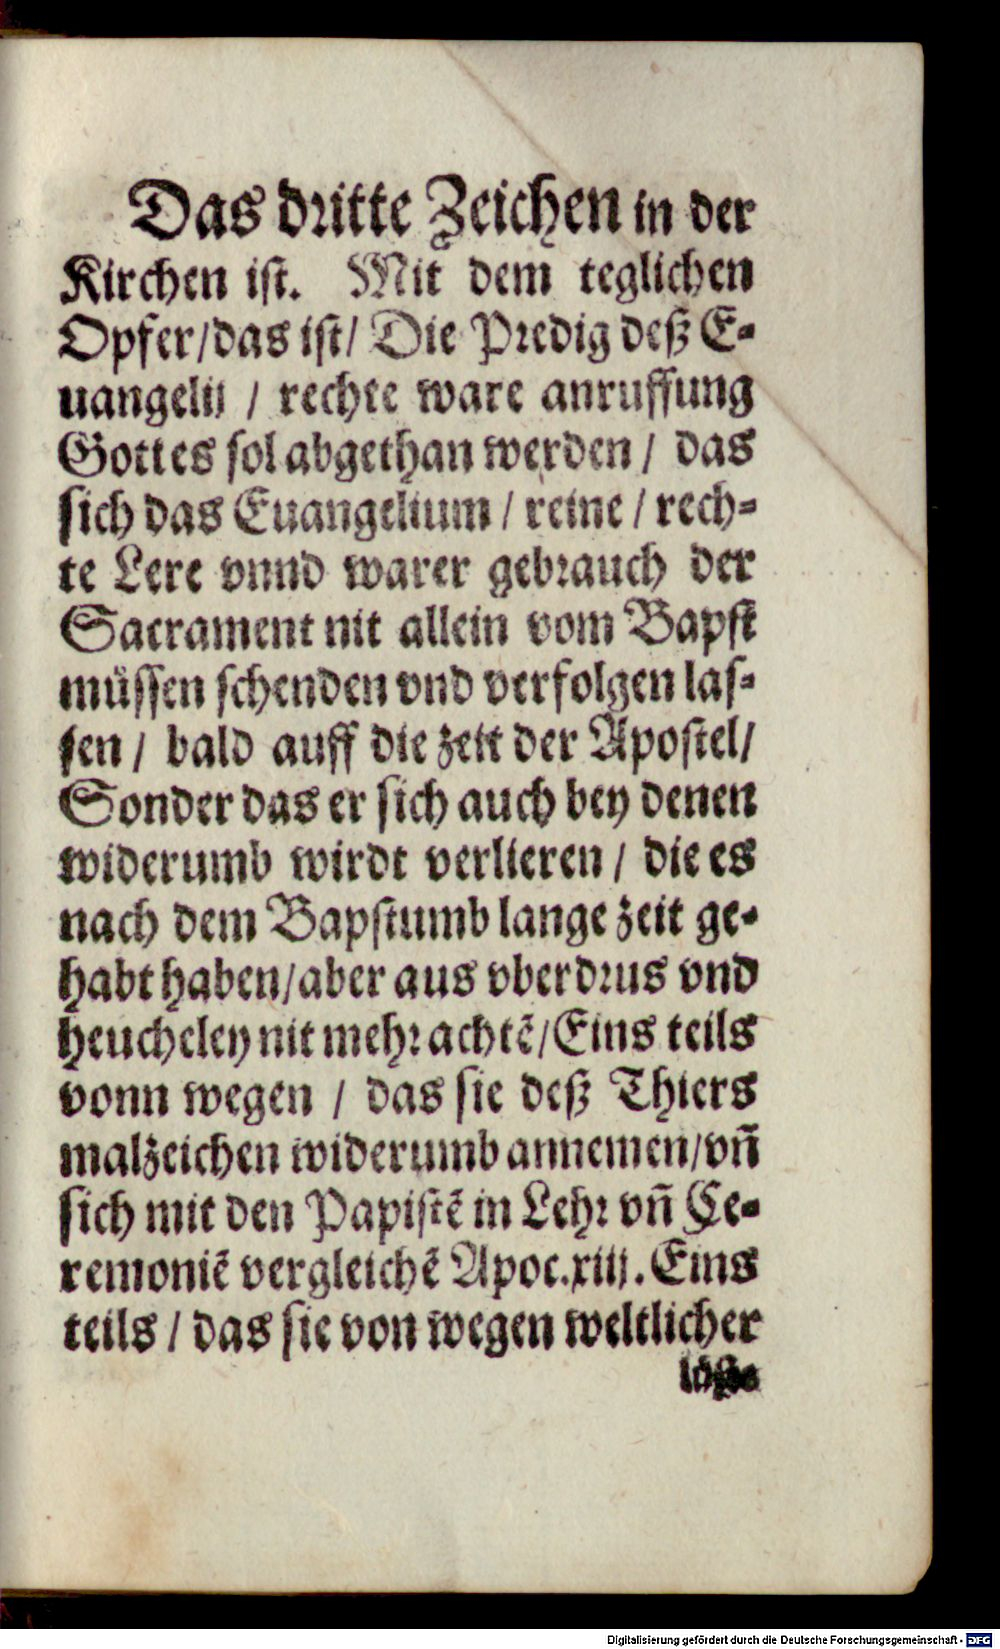 Das dritte Zeichen in der
Kirchen ist. Mit dem teglichen
Opfer/das ist/ Die Predig deß E-
uangelij / rechte ware anruffung
Gottes sol abgethan werden / das
sich das Euangelium / reine / rech-
te Lere vnnd warer gebrauch der
Sacrament nit allein vom Bapst
müssen schenden vnd verfolgen las-
sen / bald auff die zeit der Apostel/
Sonder das er sich auch bey denen
widerumb wirdt verlieren / die es
nach dem Bapstumb lange zeit ge-
habt haben/aber aus vberdrus vnd
heucheley nit mehr achtē/Eins teils
vonn wegen / das sie deß Thiers
malzeichen widerumb annemen/vñ
sich mit den Papistē in Lehr vñ Ce-
remoniē vergleichē Apoc.xiij. Eins
teils / das sie von wegen weltlicher
Digitalisierung gefördert durch die Deutsche Forschungsgemeinschaft - DFG